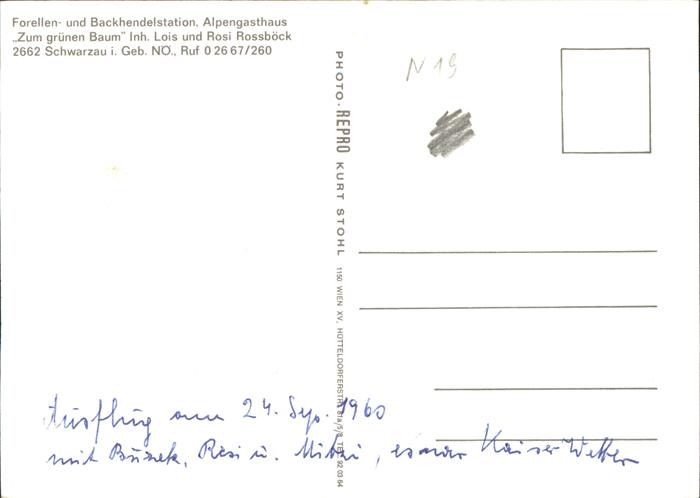 Forellen- und Backhendelstation, Alpengasthaus
„Zum grünen Baum" Inh. Lois und Rosi Rossböck
2662 Schwarzau i. Geb. NÖ., Ruf 0 26 67/260
N 19
PHOTO-REPRO KURT STOHL 1150 WIEN XV, HÜTTELDORFERSTR. 81a/5/8, TEL. 92 03 64
Ausflug am 24. Sep. 1960
mit Resi u. es war Kaiser Wetter